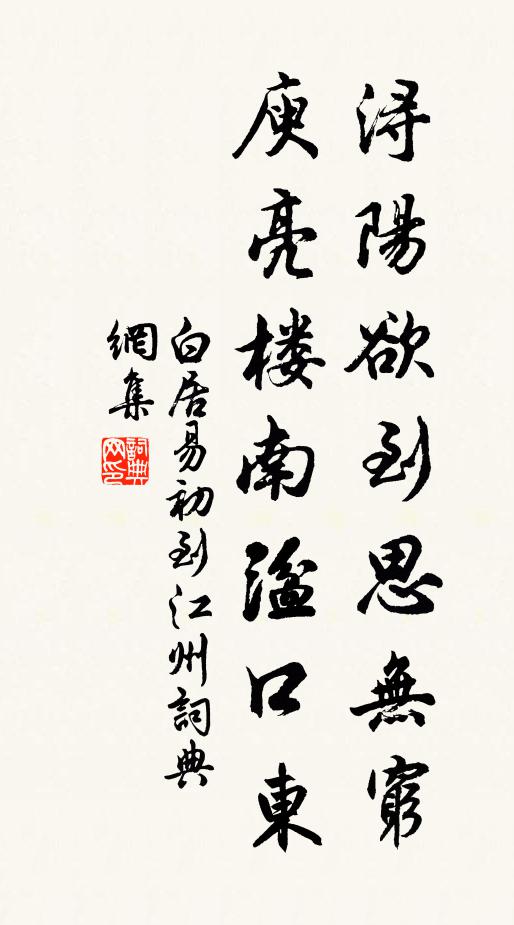 潯陽欲到思無窮
庾亮樓南湓口東
白居易初到江州詞典
網集
詞典
网印